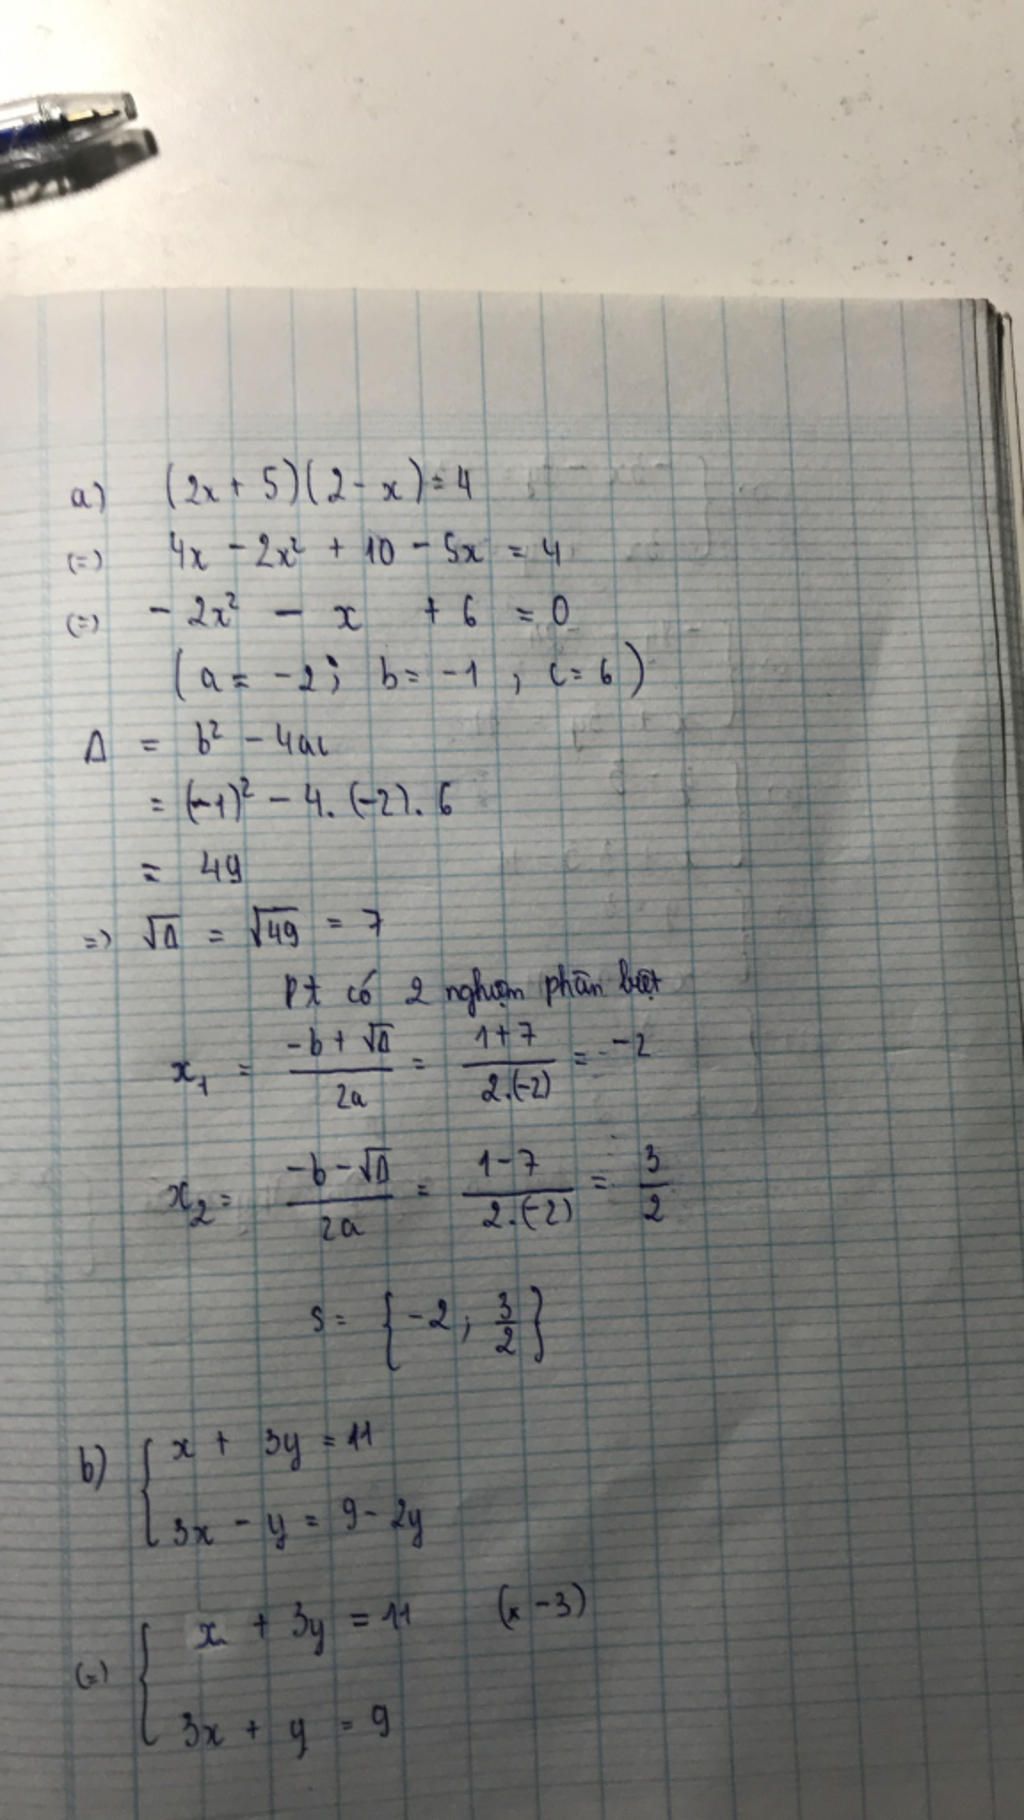 a) (2x + 5)(2 - x) = 4
(=) 4x - 2x² + 10 - 5x = 4
(=) - 2x² - x + 6 = 0
(a = -2; b = -1 ; c = 6)
Δ = b² - 4ac
= (-1)² - 4. (-2). 6
= 49
=> √Δ = √49 = 7
Pt có 2 nghiệm phân biệt
x₁ = (-b + √Δ)/2a = (1 + 7)/2.(-2) = -2
x₂ = (-b - √Δ)/2a = (1 - 7)/2.(-2) = 3/2
S = {-2; 3/2}
b) { x + 3y = 11
3x - y = 9 - 2y
(=) { x + 3y = 11 (x -3)
3x + y = 9